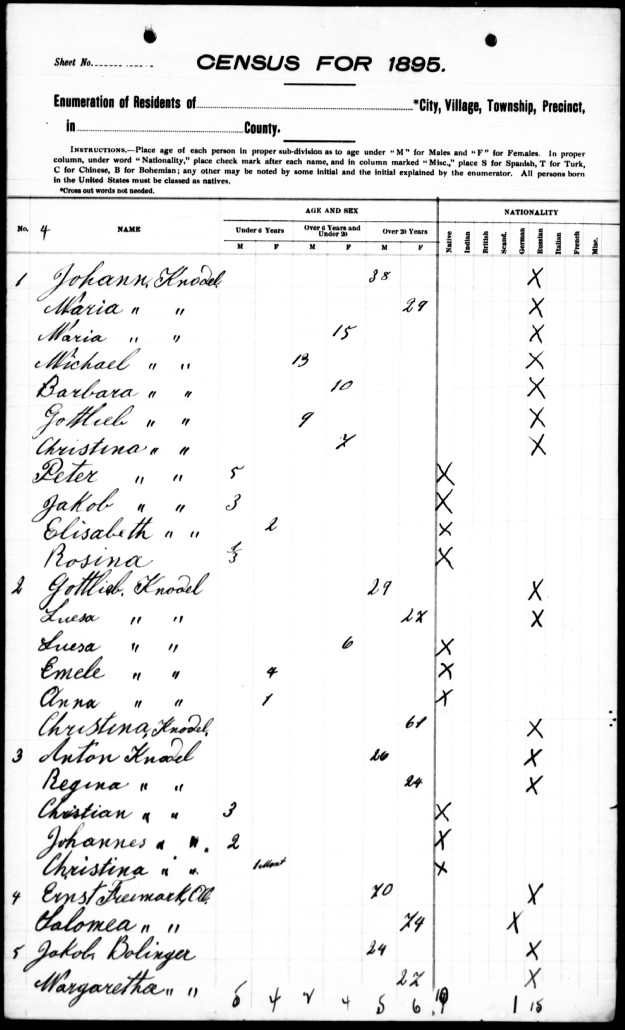 Sheet No. CENSUS FOR 1895.
Enumeration of Residents of *City, Village, Township, Precinct,
in County.
INSTRUCTIONS.—Place age of each person in proper sub-division as to age under "M" for Males and "F" for Females. In proper
column, under word "Nationality," place check mark after each name, and in column marked "Misc.," place S for Spanish, T for Turk,
C for Chinese, B for Bohemian; any other may be noted by some initial and the initial explained by the enumerator. All persons born
in the United States must be classed as natives.
*Cross out words not needed.
AGE AND SEX NATIONALITY
No. 4 NAME Under 6 Years Over 6 Years and Under 20 Over 20 Years Native Indian British Scand. German Russian Italian French Misc.
M F M F M F
1 Johann, Knodel 38 X
Maria " " 29 X
Maria " " 15 X
Michael " " 13 X
Barbara " " 10 X
Gottlieb " " 9 X
Christina " " 7 X
Peter " " 5 X
Jakob " " 3 X
Elisabeth " " 2 X
Rosina 1/3 X
2 Gottlieb, Knodel 29 X
Luesa " " 27 X
Luesa " " 6 X
Emele " " 4 X
Anna " " 1 X
Christina, Knodel, 61 X
3 Anton Knodel 26 X
Regina " " 24 X
Christian " " 3 X
Johannes " ". 2 X
Christina " ". 1 Mont X
4 Ernst Freimark, 70 X
Salomea " " 74 X
5 Jakob, Bolinger 24 X
Margaretha " " 27 X
5 4 2 4 5 6 1 15